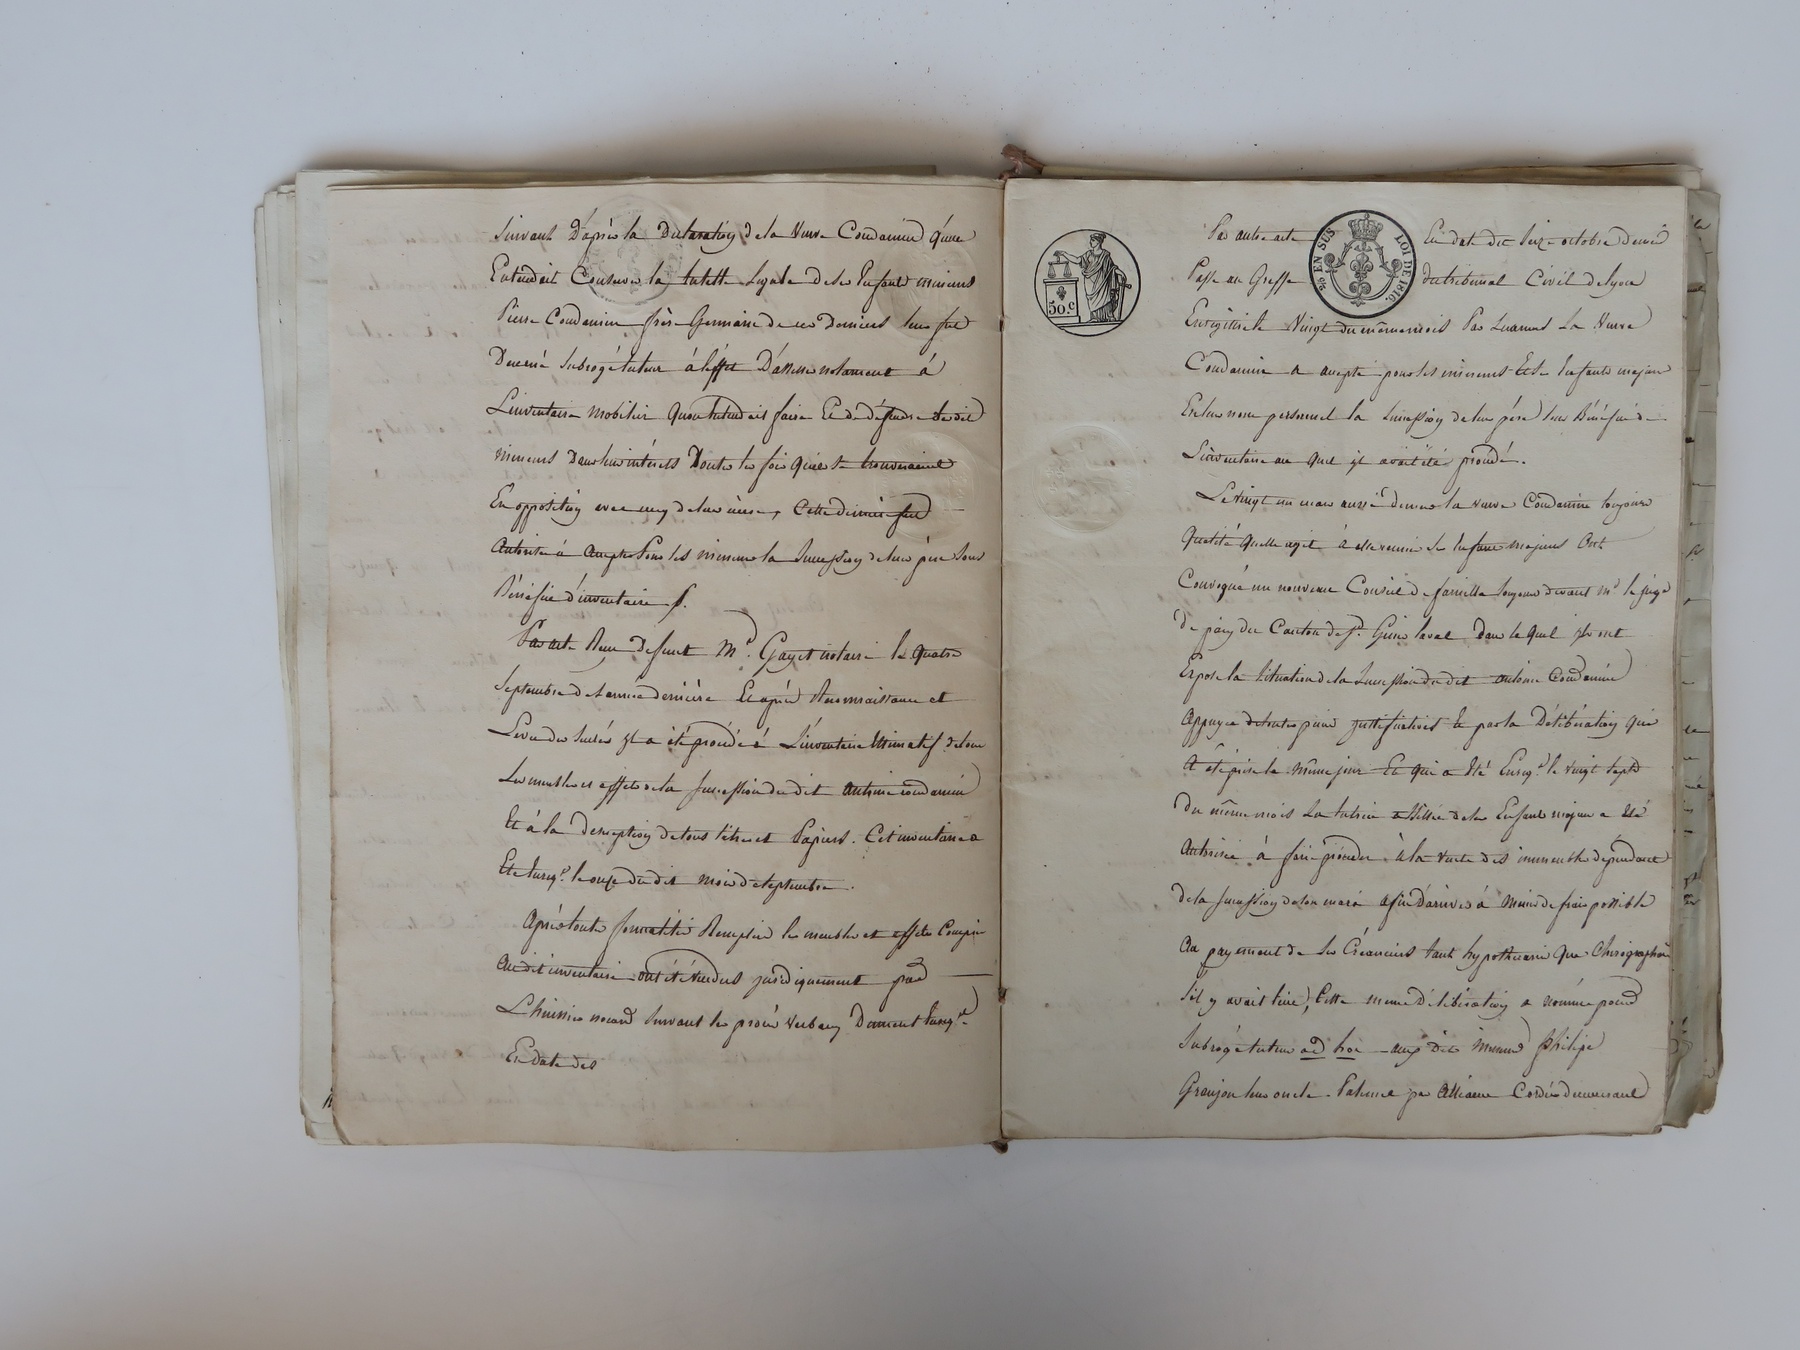 suivant D'après la Declaration de la Veuve Condamine qu'elle
Entendoit Conserver la tutelle Legale de ses Enfants mineurs
Pierre Condamine frère Germain de ces Derniers leur fut
Donné Subrogé tuteur à l'effet D'assister notament à
L'inventaire mobilier qu'on Entendait faire Et de défendre lesdits
mineurs Dans leurs intérêts Toutes les fois qu'ils se trouveraient
En opposition avec ceux de leur mère, Cette dernière fut
Autorisée à accepter Pour les mineurs la Succession de leur père Sous
Bénéfice d'inventaire.
Par acte Reçu defunct Me. Gayet notaire le quatre
Septembre de l'année dernière Et après Reconnaissance et
Levée des Scellés Il a été procédé à L'inventaire Estimatif de tous
Les meubles et effets de la Succession du dit Antoine Condamine
Et à la Description de tous titres et Papiers. Cet inventaire a
Été Enregé. le onze du dit mois de septembre.
Après toute formalité Remplies les meubles et effets Compris
Au dit inventaire ont été Vendus juridiquement par
L'huissier suivant les procès verbaux Dument Enregé.
En date des
50.C
EN SUS
LOI DE 1816.
Par autre acte En date du seize octobre dernier
Passé au Greffe du tribunal Civil de Lyon
Enregistré le Vingt du même mois Par Suamus La Veuve
Condamine a accepté pour les mineurs Et les Enfants majeurs
En leur nom personnel la Succession de leur père sous Bénéfice de
L'inventaire au quel il avait été procédé.
Le vingt un mars aussi dernier la veuve Condamine toujours
Qualité qu'elle agit à elle réunie les Enfans majeurs Ont
Convoqué un nouveau Conseil de famille toujours devant Mr. le juge
De paix du Canton de St. Genis laval Dans le quel Ils ont
Exposé la Situation de la Succession du dit Antoine Condamine
Appuyée de toutes pièces justificatives Et par la Délibération qui
A été prise le Même jour Et qui a Eté Enregé. le vingt sept
Du même mois La tutrice assistée de ses Enfans majeurs a Eté
Autorisée à faire procéder à la vente des immeubles dependant
de la Succession de son mari afin D'arriver à Moins de frais possible
Au payement de Ses Créanciers tant hypothécaire Que Chirographaire
S'il y avait lieu, Cette même Délibération a nommé pour
Subrogé tuteur ad hoc aux Dits Mineurs Philipe
Granjon leur oncle Paternel par Alliance Cordier demeurant